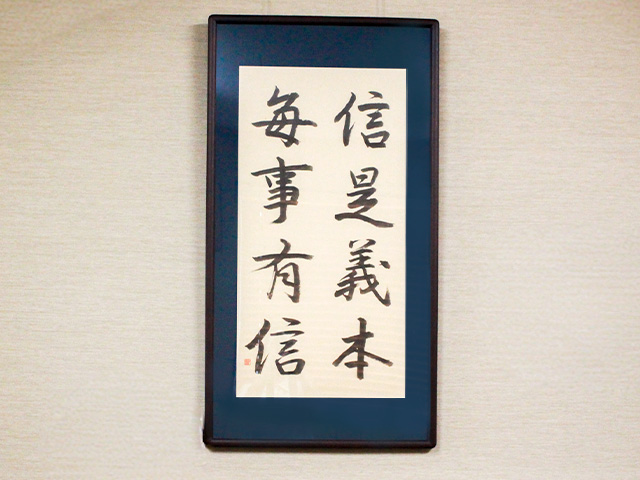 信是義本
毎事有信